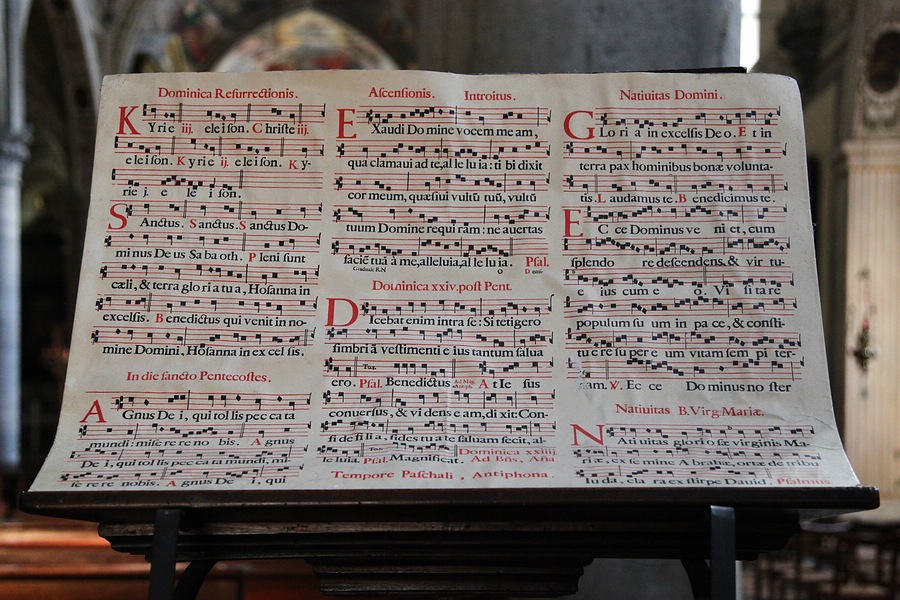 Dominica Resurrectionis.
KYrie iij. eleison. Christe iij.
eleison. Kyrie ij. eleison. Ky-
rie j. e le i son.
SAnctus. Sanctus. Sanctus Do-
minus Deus Sabaoth. Pleni sunt
cæli, & terra gloria tua, Hosanna in
excelsis. Benedictus qui venit in no-
mine Domini, Hosanna in excelsis.
In die sancto Pentecostes.
AGnus Dei, qui tollis peccata
mundi: miserere nobis. Agnus
Dei, qui tollis peccata mundi, mi-
serere nobis. Agnus Dei, qui
Ascensionis. Introitus.
EXaudi Domine vocem meam,
qua clamaui ad te, alleluia: tibi dixit
cor meum, quæsiui vultū tuū, vultū
tuum Domine requiram: ne auertas
faciē tuā à me, alleluia, alleluia. Psal.
Graduale R.N
Dominica xxiv. post Pent.
DIcebat enim intra se: Si tetigero
fimbriā vestimenti eius tantum salua
ero. Psal. Benedictus Ad Mag. Antiph. At Iesus
conuersus, & videns eam, dixit: Con-
fide filia, fides tua te saluam fecit, al-
leluia. Psal. Magnificat. Dominica xxiiij.
Ad Bñs, Aña
Tempore Paschali, Antiphona
Natiuitas Domini.
GLoria in excelsis Deo. Et in
terra pax hominibus bonæ volunta-
tis. Laudamus te. Benedicimus te.
ECce Dominus veniet, cum
splendore descendens, & virtu-
eius cum eo. Visitare
populum suum in pace, & consti-
tuere super eum vitam sempiter-
nam. V. Ecce Dominus noster
Natiuitas B. Virg. Mariæ.
NAtiuitas gloriosæ virginis Ma-
riæ, ex semine Abrahæ, ortæ de tribu
Iuda, clara ex stirpe Dauid. Psalmus